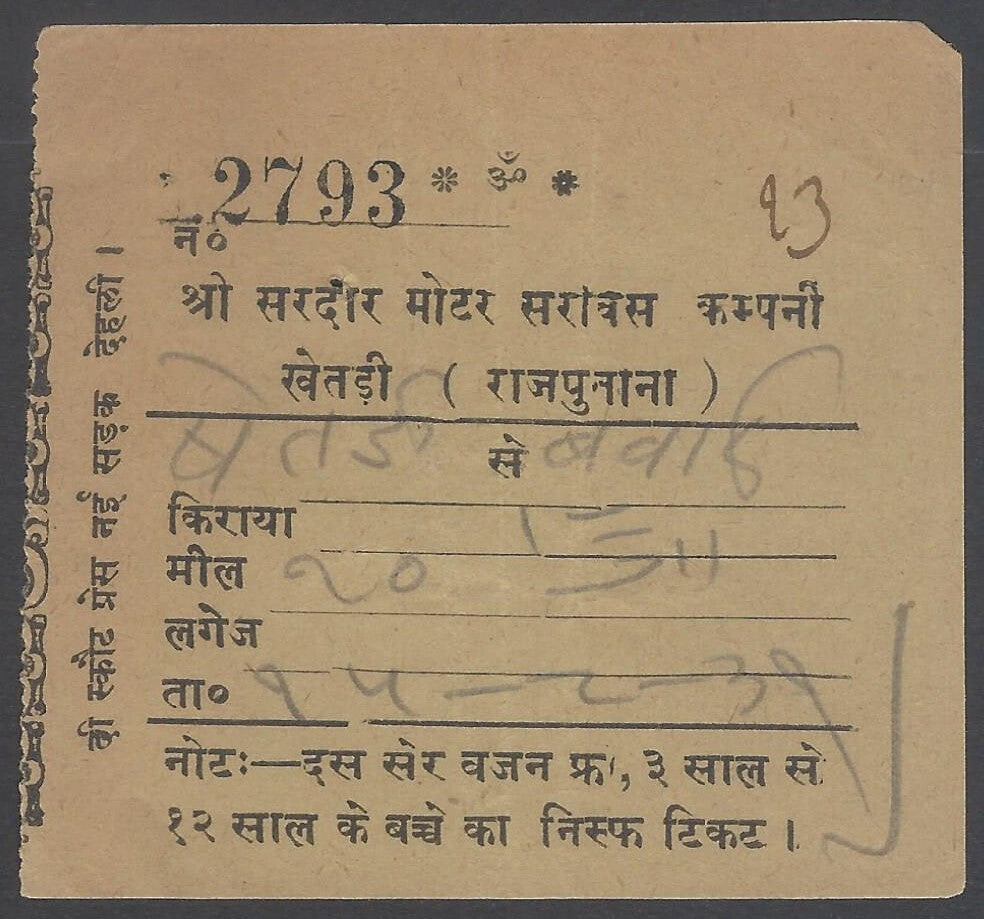 2793 * ॐ *
१३
नं०
श्री सरदार मोटर सरविस कम्पनी
खेतड़ी ( राजपुताना )
खेतड़ी से
किराया
मील २०
लगेज
ता० १५—८—३१
नोटः—दस सेर वजन फ्री, ३ साल से
१२ साल के बच्चे का निस्फ टिकट ।
दी स्कौट प्रेस नई सड़क देहली ।